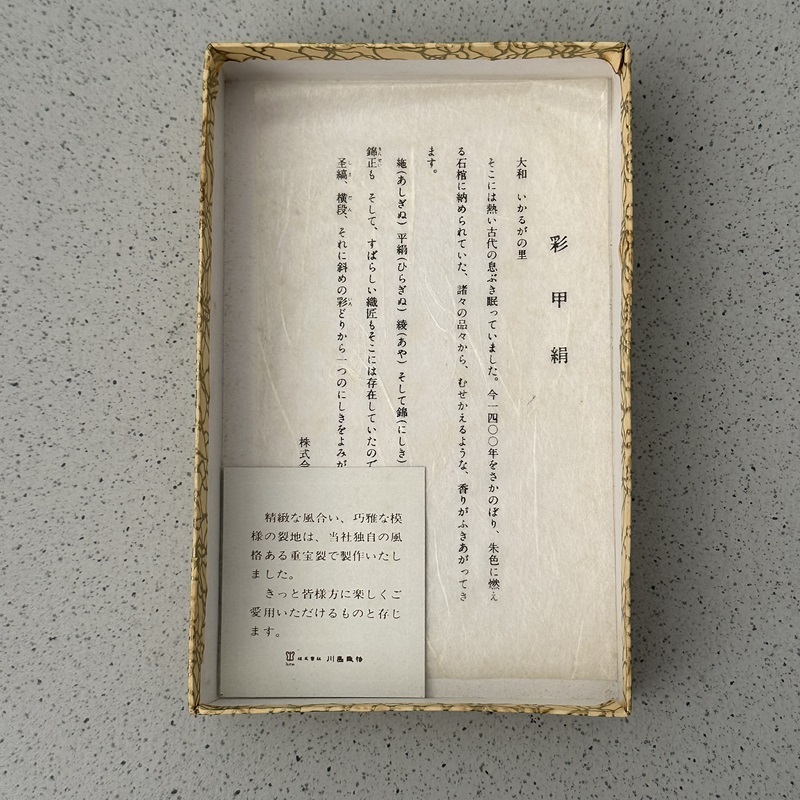 彩甲絹
大和　いかるがの里
そこには熱い古代の息ぶき眠っていました。今一四〇〇年をさかのぼり、朱色に燃え
る石棺に納められていた、諸々の品々から、むせかえるような、香りがふきあがってき
ます。
絁(あしぎぬ) 平絹(ひらぎぬ) 綾(あや) そして錦(にしき)
錦正も　そして、すばらしい織匠もそこには存在していたので
圣縞、横段、それに斜めの彩どりから一つのにしきをよみが
株式会
精緻な風合い、巧雅な模
様の裂地は、当社独自の風
格ある重宝裂で製作いたし
ました。
きっと皆様方に楽しくご
愛用いただけるものと存じ
ます。
株式会社 川島織物